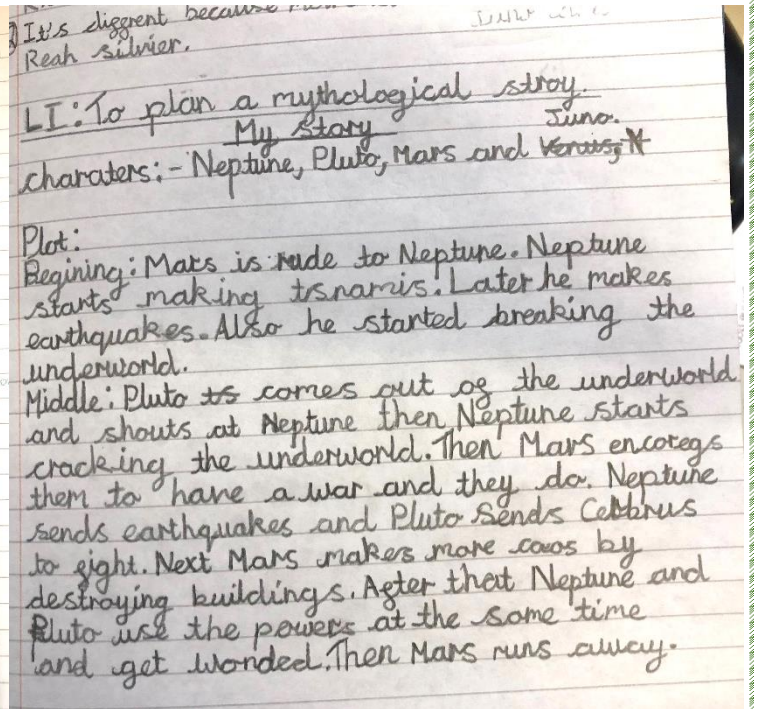 It's diggrent because
Reah silvier.
LI: To plan a mythological stroy.
My Story
Juno.
charaters:- Neptune, Pluto, Mars and Venus, N
Plot:
Begining: Mars is rude to Neptune. Neptune
starts making tsnamis. Later he makes
earthquakes. Also he started breaking the
underworld.
Middle: Pluto ts comes out og the underworld
and shouts at Neptune then Neptune starts
cracking the underworld. Then Mars encoregs
them to have a war and they do. Neptune
sends earthquakes and Pluto Sends Cebbrus
to gight. Next Mars makes more caos by
destroying buildings. Agter that Neptune and
Pluto use the powers at the same time
and get wonded. Then Mars runs away.